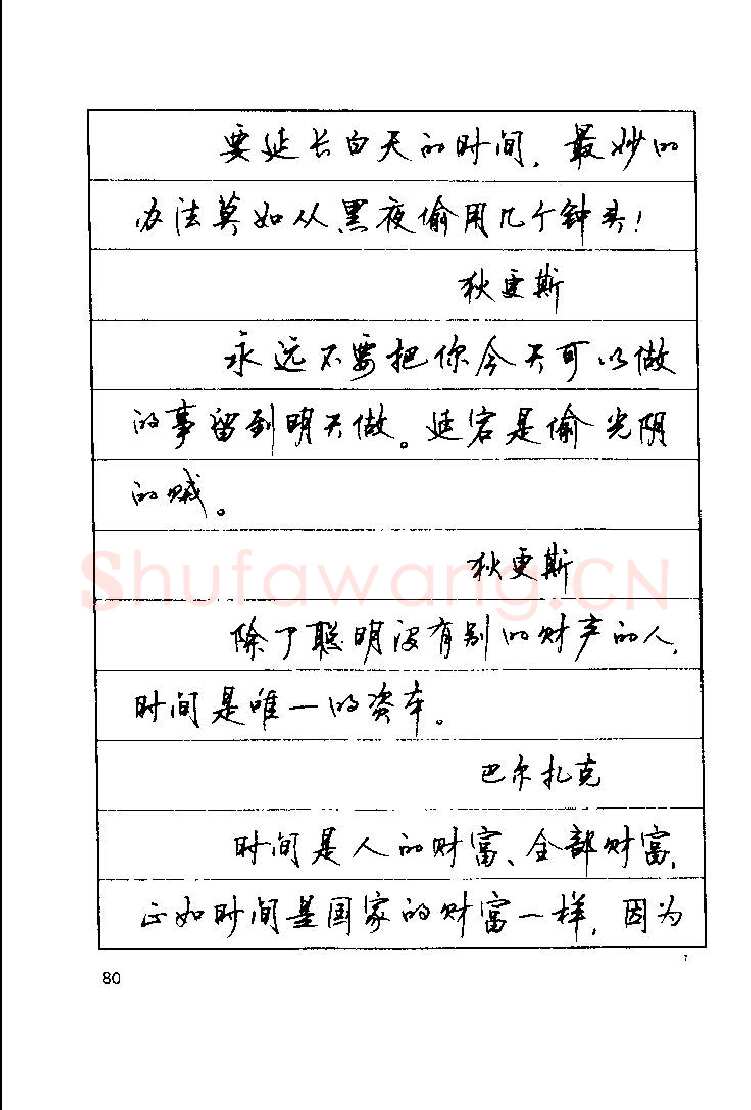 要延长白天的时间，最妙的
办法莫如从黑夜偷用几个钟头！
狄更斯
永远不要把你今天可以做
的事留到明天做。延宕是偷光阴
的贼。
狄更斯
Shufawang.CN
除了聪明没有别的财产的人，
时间是唯一的资本。
巴尔扎克
时间是人的财富、全部财富，
正如时间是国家的财富一样，因为
80